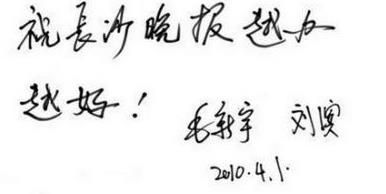 祝长沙晚报越办
越好！
毛新宇 刘滨
2010.4.1.